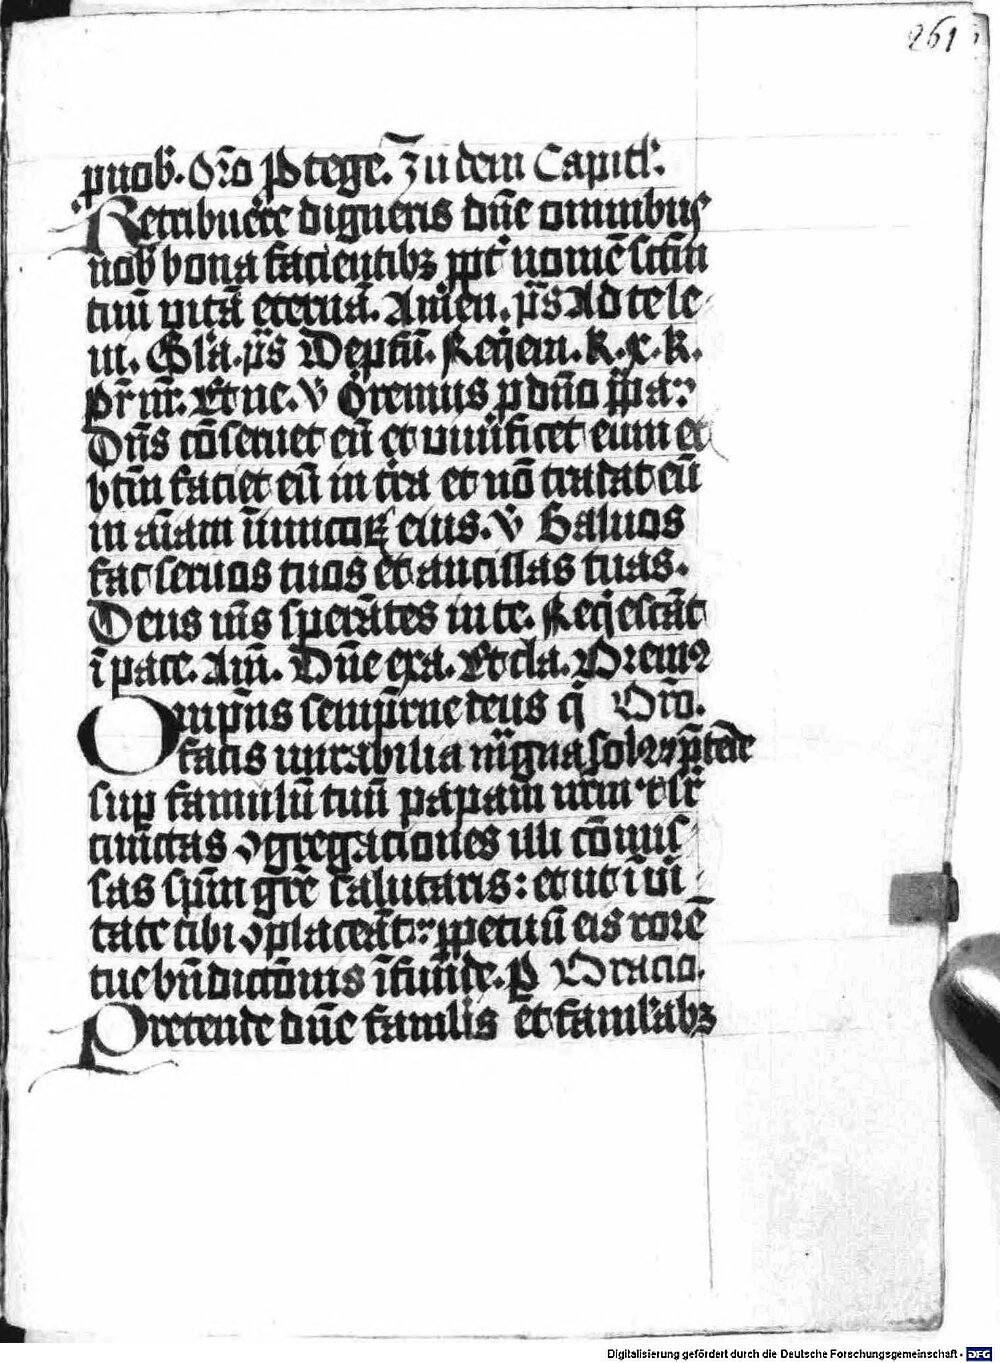 261
p nob. Oro Ptege. Zu dem Capitl.
Retribuere digneris dn̄e omnibus
nob̄ bona facientibꝫ ppt̄ nomē sctm̄
tuū vitā eternā. Amen. ps Ad te le
ui. Gl̄a. ps Depfū. Reqem. k. x. k.
Pr̄ nr̄. Et ne. v Oremus p dn̄o ppa.
Dn̄s cōseruet eū et viuificet eum et
btm̄ faciet eū in t̄ra et nō tradat eū
in aīam inimicoꝝ eius. v Saluos
fac seruos tuos et ancillas tuas.
Deus m̄s sperātes in te. Reqescāt
ī pace. Am̄. Dn̄e exa. Et cla. Oremꝰ
Omp̄ns sempit̄ne deus q̄ Oro.
facis mirabilia mīgna solꝰ p̄tēde
sup famulū tuū papam nr̄m et sr̄
cunctas ꝯgregaciones illi cōmis
sas sp̄m grē salutaris: et ut ī ui
tate tibi ꝯplaceāt: ppetuū eis rorē
tue bn̄dictōnis īfunde. P Oracio.
Pretende dn̄e famulis et famulabꝫ
Digitalisierung gefördert durch die Deutsche Forschungsgemeinschaft - DFG